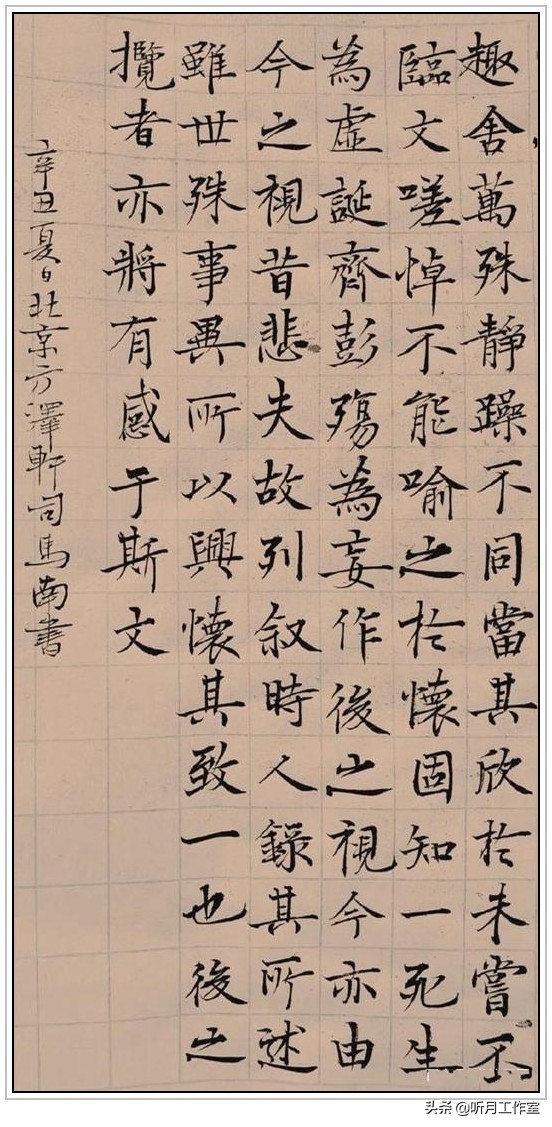 趣舍萬殊靜躁不同當其欣於未嘗不
臨文嗟悼不能喻之於懷固知一死生
為虛誕齊彭殤為妄作後之視今亦由
今之視昔悲夫故列叙時人錄其所述
雖世殊事異所以興懷其致一也後之
攬者亦將有感于斯文
辛丑夏日北京方澤軒司馬南書
头条 @听月工作室